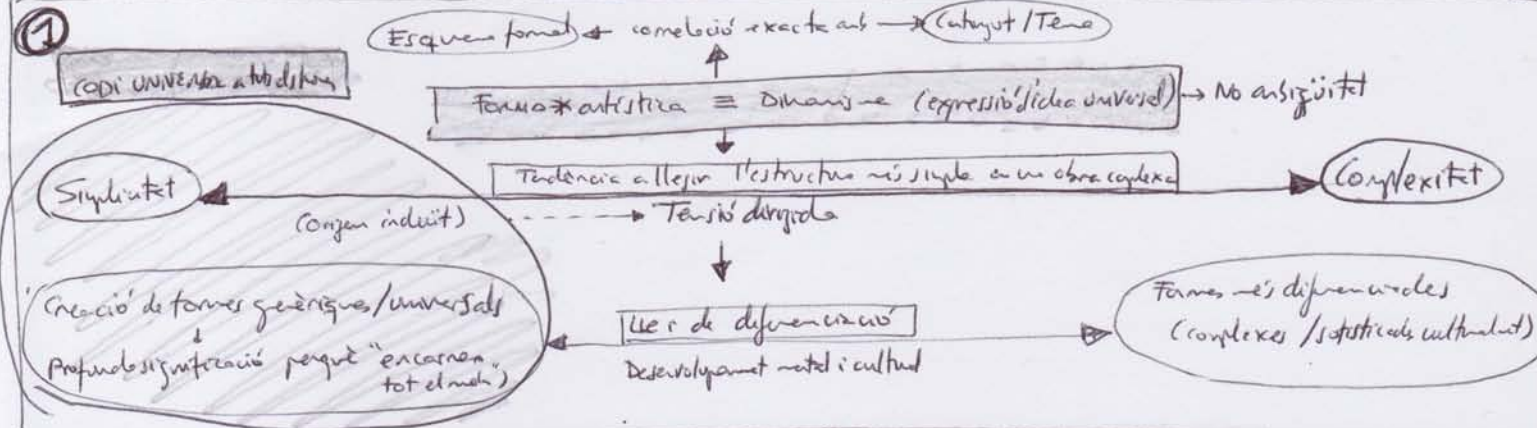 1
Esquema formal correlació exacta amb Contingut / Tema
CODI UNIVERSAL a tots
Forma* artística ≡ Dinamisme (expressió idea universal) → No ambigüitat
Tendència a llegir l'estructura més simple en una obra complexa
Simplicitat
Complexitat
(origen induït) → Tensió dirigida
Creació de formes genèriques/universals
Profunda significació perquè "encarnen
tot el món")
Llei de diferenciació
Desenvolupament mental i cultural
Formes més diferenciades
(complexes / sofisticades culturalment)